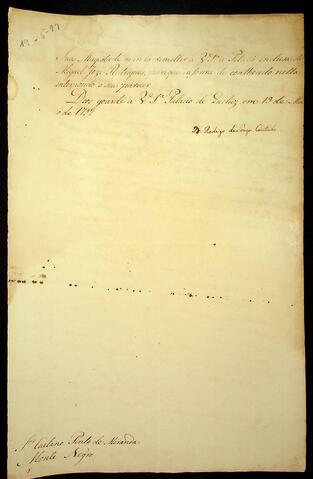 19-5-97
Sua Magestade manda remetter a V. Sª a Petição incluza de
Miguel Joze Rodrigues, para que informe do contheudo nella
interpondo o seu parecer
Deos guarde a V. Sª Palacio de Queluz em 19 de Mai
o de 1797
D. Rodrigo de Souza Coutinho
Snr Caetano Pinto de Miranda
Monte Negro